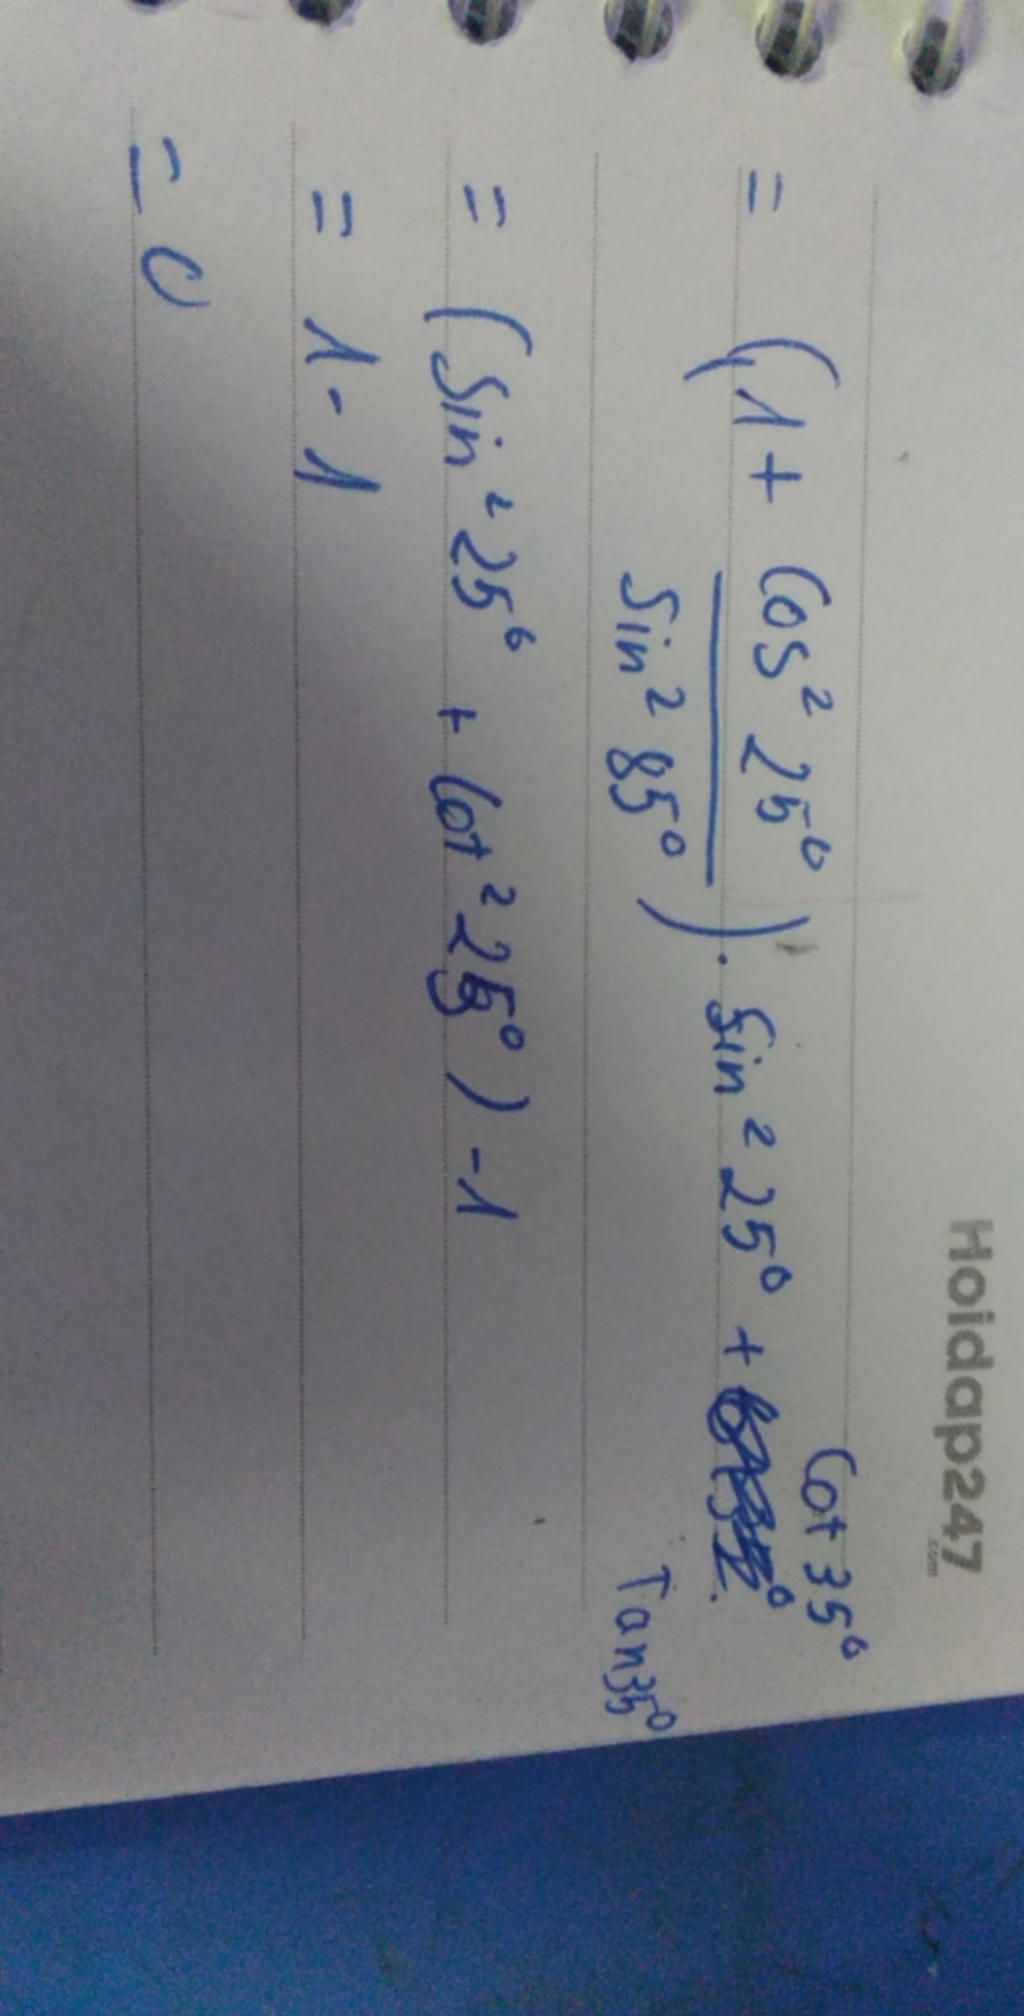 Hoidap247
.com
= (1 + Cos² 25⁰ / Sin² 85⁰) . Sin² 25⁰ + Cot 35⁰
Tan35⁰
= (Sin² 25⁰ + Cot² 25⁰) - 1
= 1 - 1
= 0